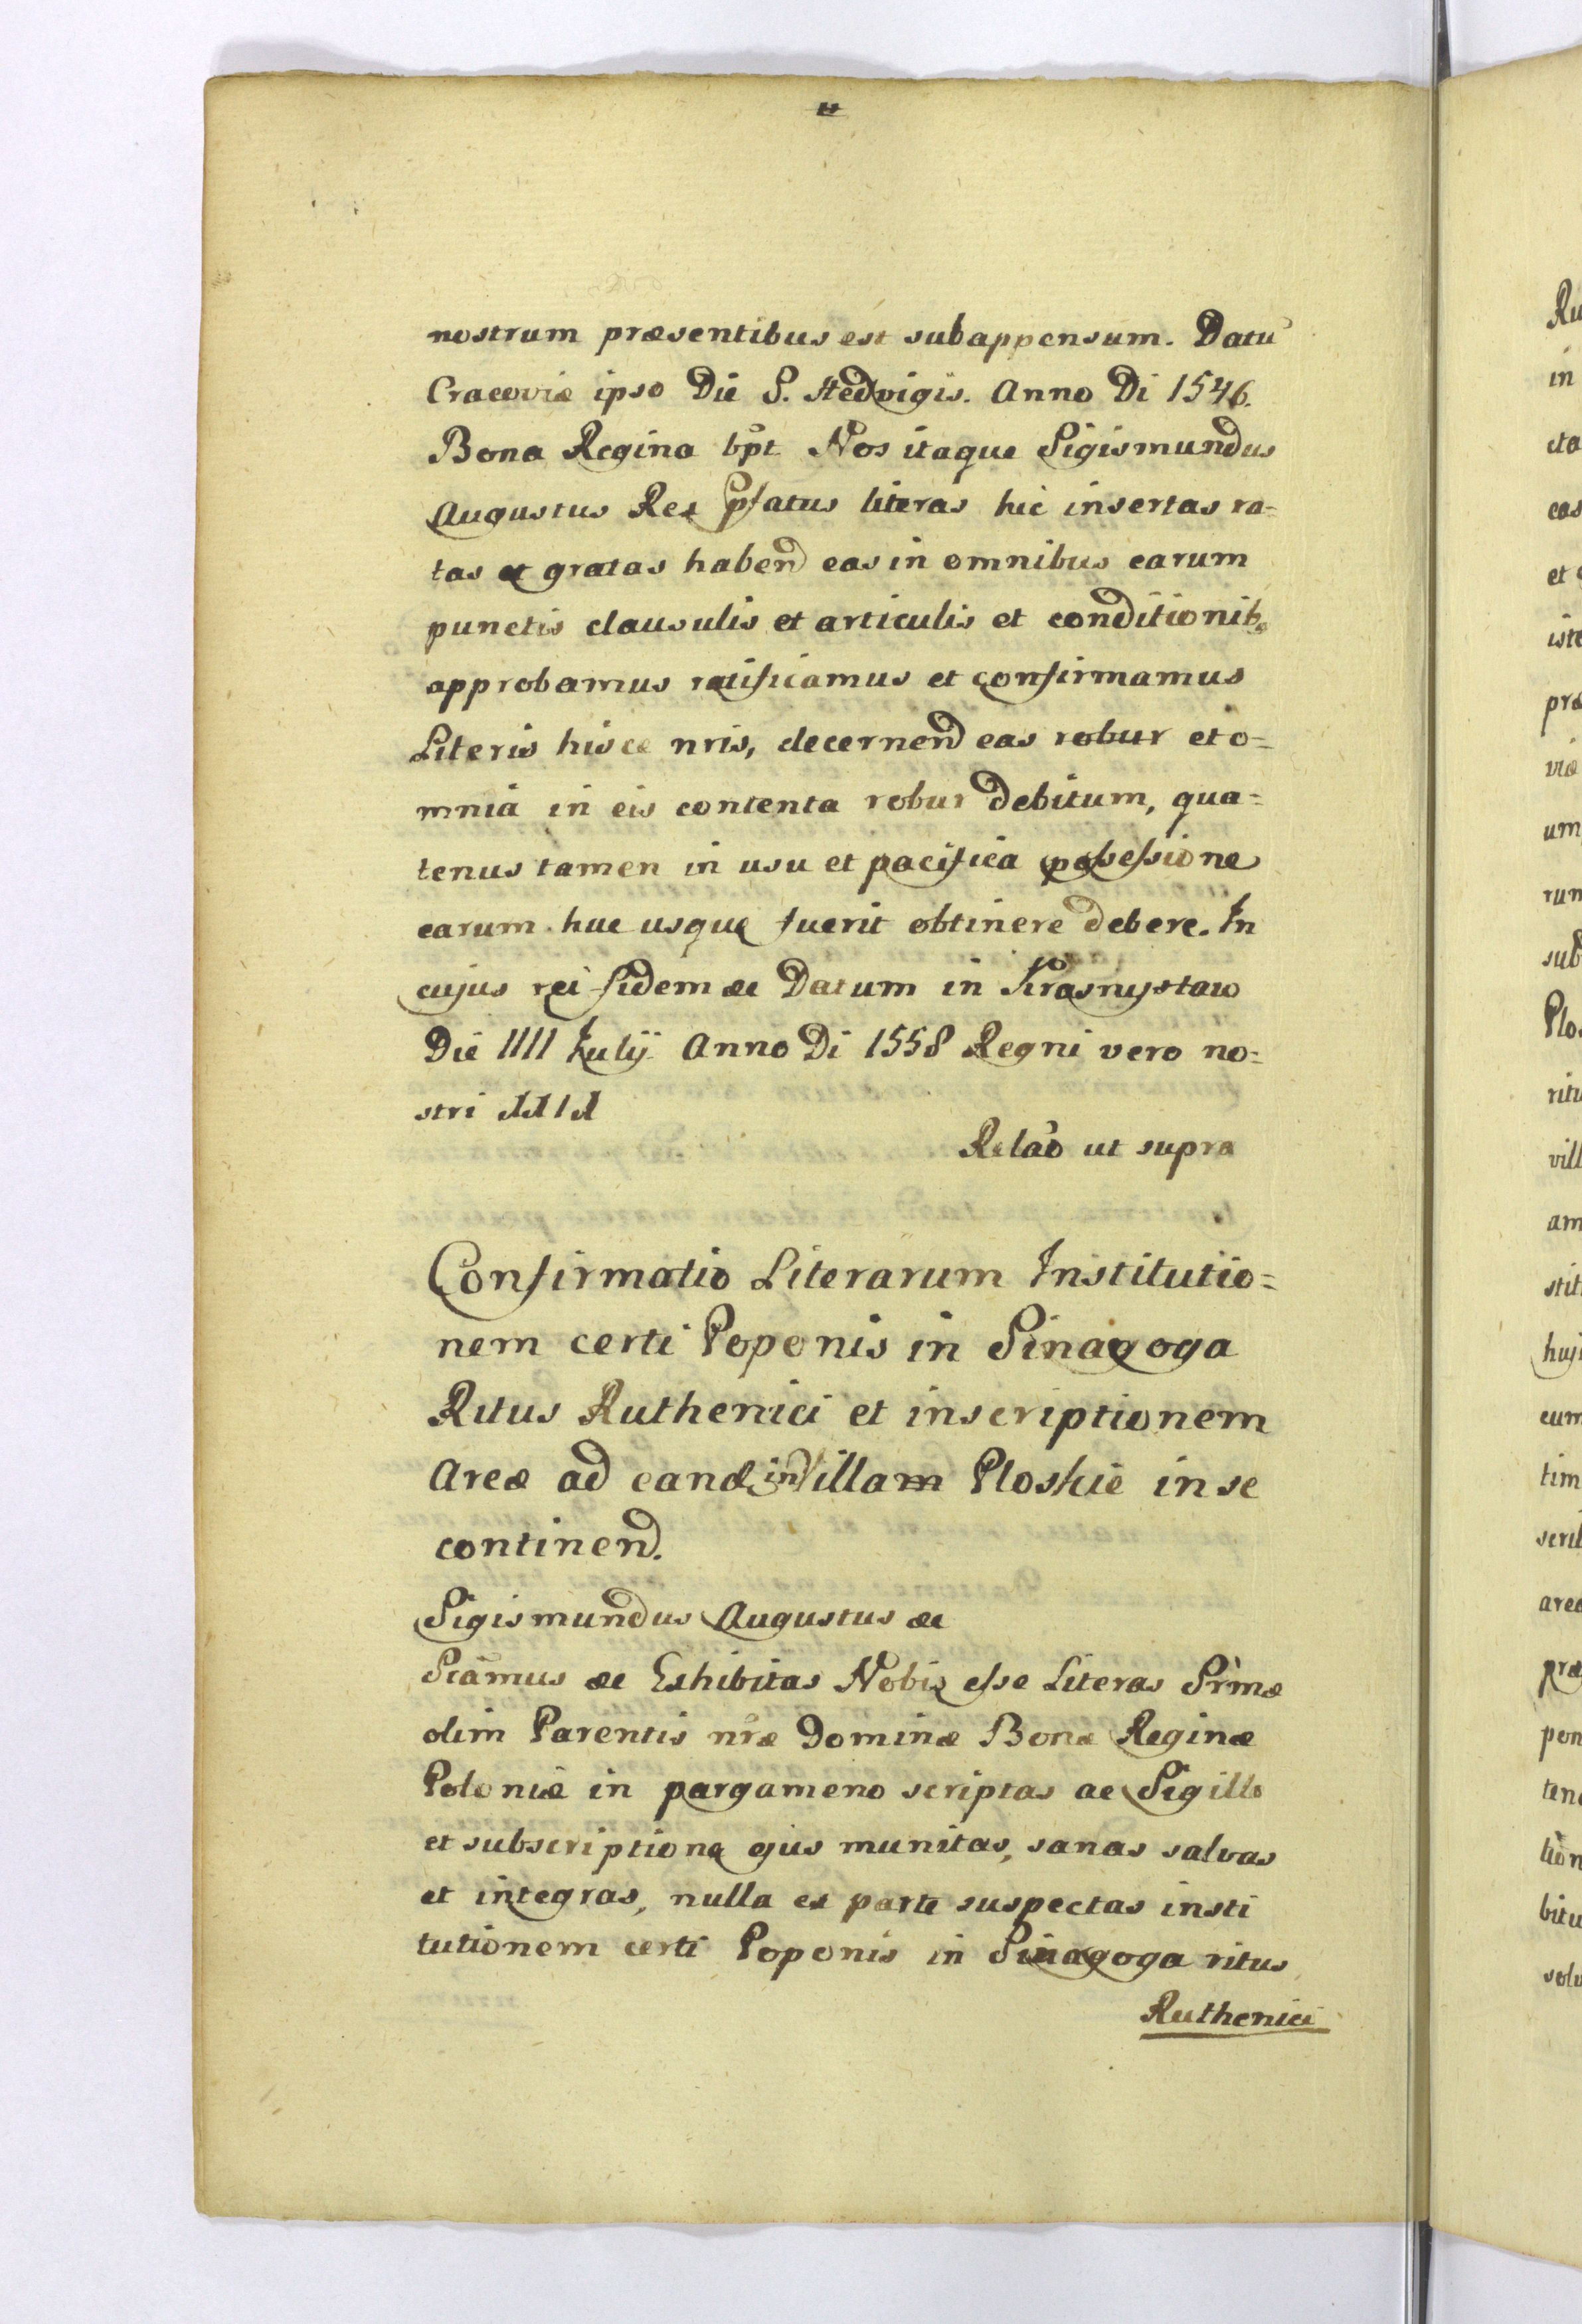 nostrum præsentibus est subappensum. Datū
Cracoviæ ipso Die S. Hedvigis. Anno Di 1546.
Bona Regina Nos itaque Sigismundus
Augustus Rex pfatus literas hic insertas ra=
tas et gratas habend eas in omnibus earum
punctis clausulis et articulis et conditionib,
approbamus ratificamus et confirmamus
Literis hisce nris, decernend eas robur et o=
mnia in eis contenta robur debitum, qua=
tenus tamen in usu et pacifica possessione
earum huc usque fuerit obtinere debere. In
cujus rei fidem &c Datum in Krasnystaw
Die IIII Julij Anno Di 1558 Regni vero no=
stri XXIX
Relāo ut supra
Confirmatio Literarum Institutio=
nem certi Poponis in Sinagoga
Ritus Ruthenici et inscriptionem
Areæ ad eand in Villam Ploskie in se
continend.
Sigismundus Augustus &c
Sciāmus &c Exhibitas Nobis esse Literas Srmæ
olim Parentis nræ Dominæ Bonæ Reginæ
Poloniæ in pargameno scriptas ac Sigillo
et subscriptione ejus munitas, sanas salvas
et integras, nulla ex parte suspectas insti
tutionem certi Poponis in Sinagoga ritus
Ruthenici